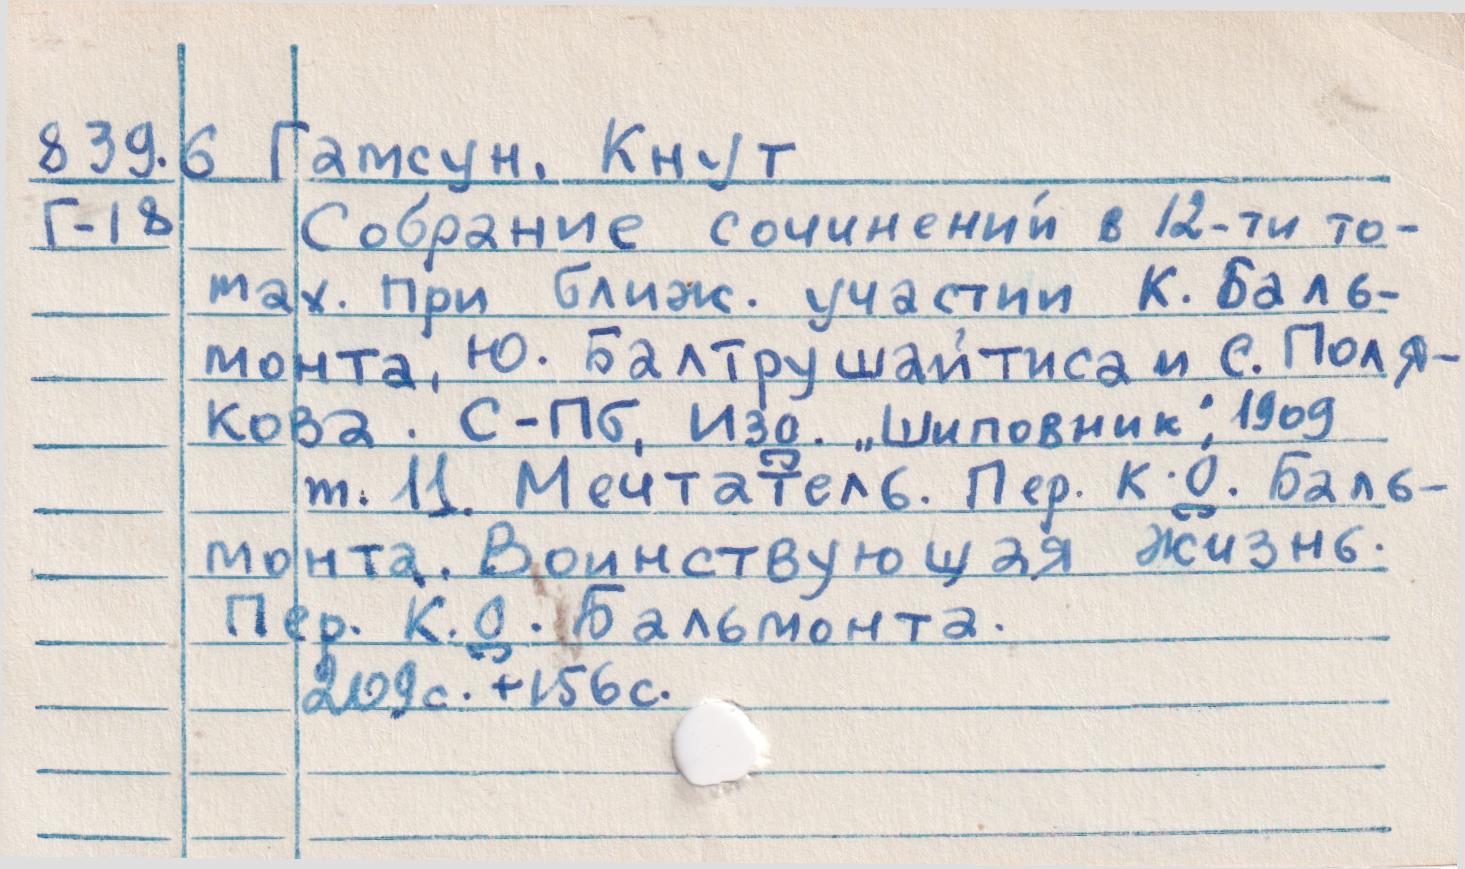 839.6 Гамсун, Кнут
Г-18 Собрание сочинений в 12-ти то-
мах. При ближ. участии К. Баль-
монта, Ю. Балтрушайтиса и С. Поля-
кова. С-Пб, Изд. „Шиповник", 1909
т. 11. Мечтатель. Пер. К.Д. Баль-
монта. Воинствующая жизнь.
Пер. К.Д. Бальмонта.
209с. +156с.